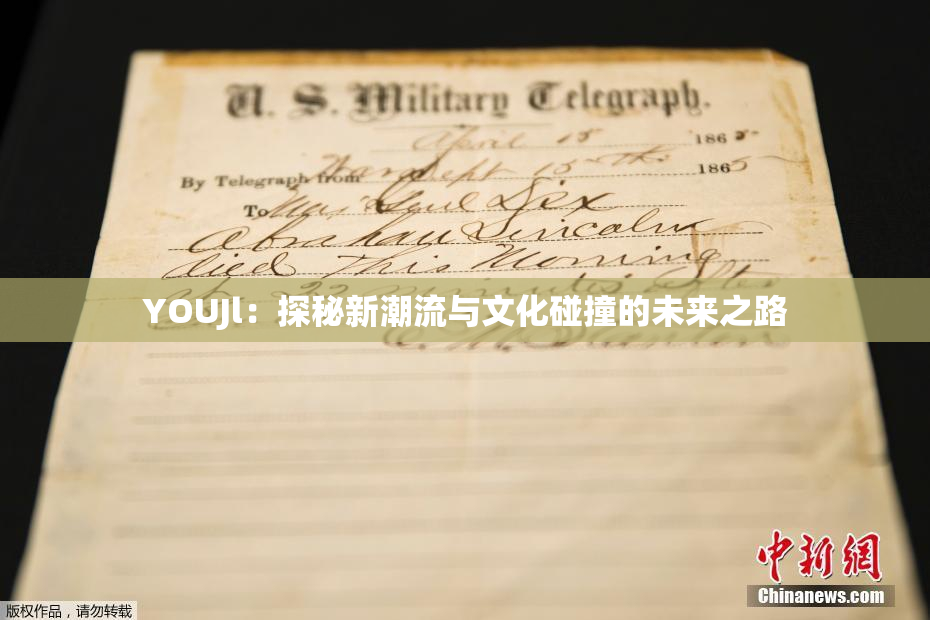 U. S. Military Telegraph.
April 15 1865
By Telegraph from War Dept 15th 1865
To Maj Genl Dix
Abraham Lincoln
died This Morning
at 22 minutes after
YOUJl：探秘新潮流与文化碰撞的未来之路
E. M. Stanton
中新网
Chinanews.com
版权作品，请勿转载